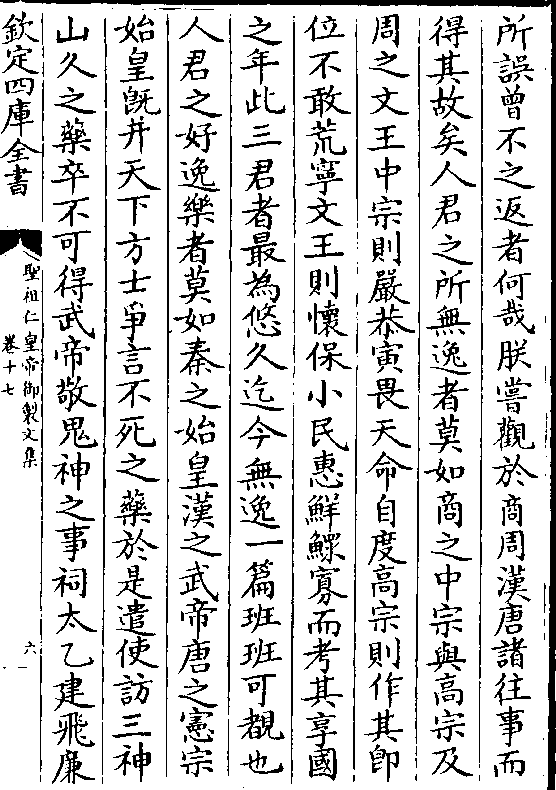 所誤曾不之返者何哉朕嘗觀於商周漢唐諸往事而
得其故矣人君之所無逸者莫如商之中宗與高宗及
周之文王中宗則嚴恭寅畏天命自度高宗則作其即
位不敢荒寧文王則懷保小民惠鮮鰥寡而考其享國
之年此三君者最為悠久迄今無逸一篇班班可覩也
人君之好逸樂者莫如秦之始皇漢之武帝唐之憲宗
始皇旣并天下方士爭言不死之藥於是遣使訪三神
山久之藥卒不可得武帝敬鬼神之事祠太乙建飛廉
欽定四庫全書
聖祖仁皇帝御製文集
卷十七
六